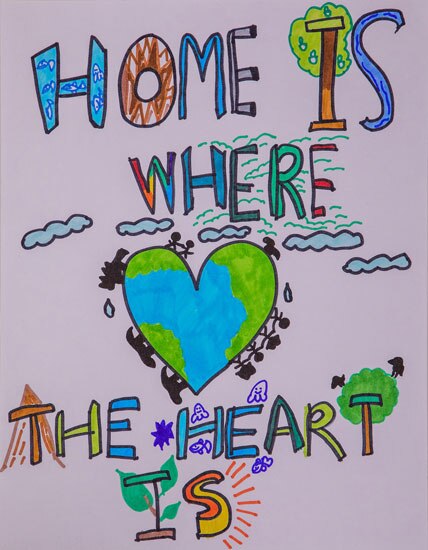 HOME IS
WHERE
THE HEART
IS